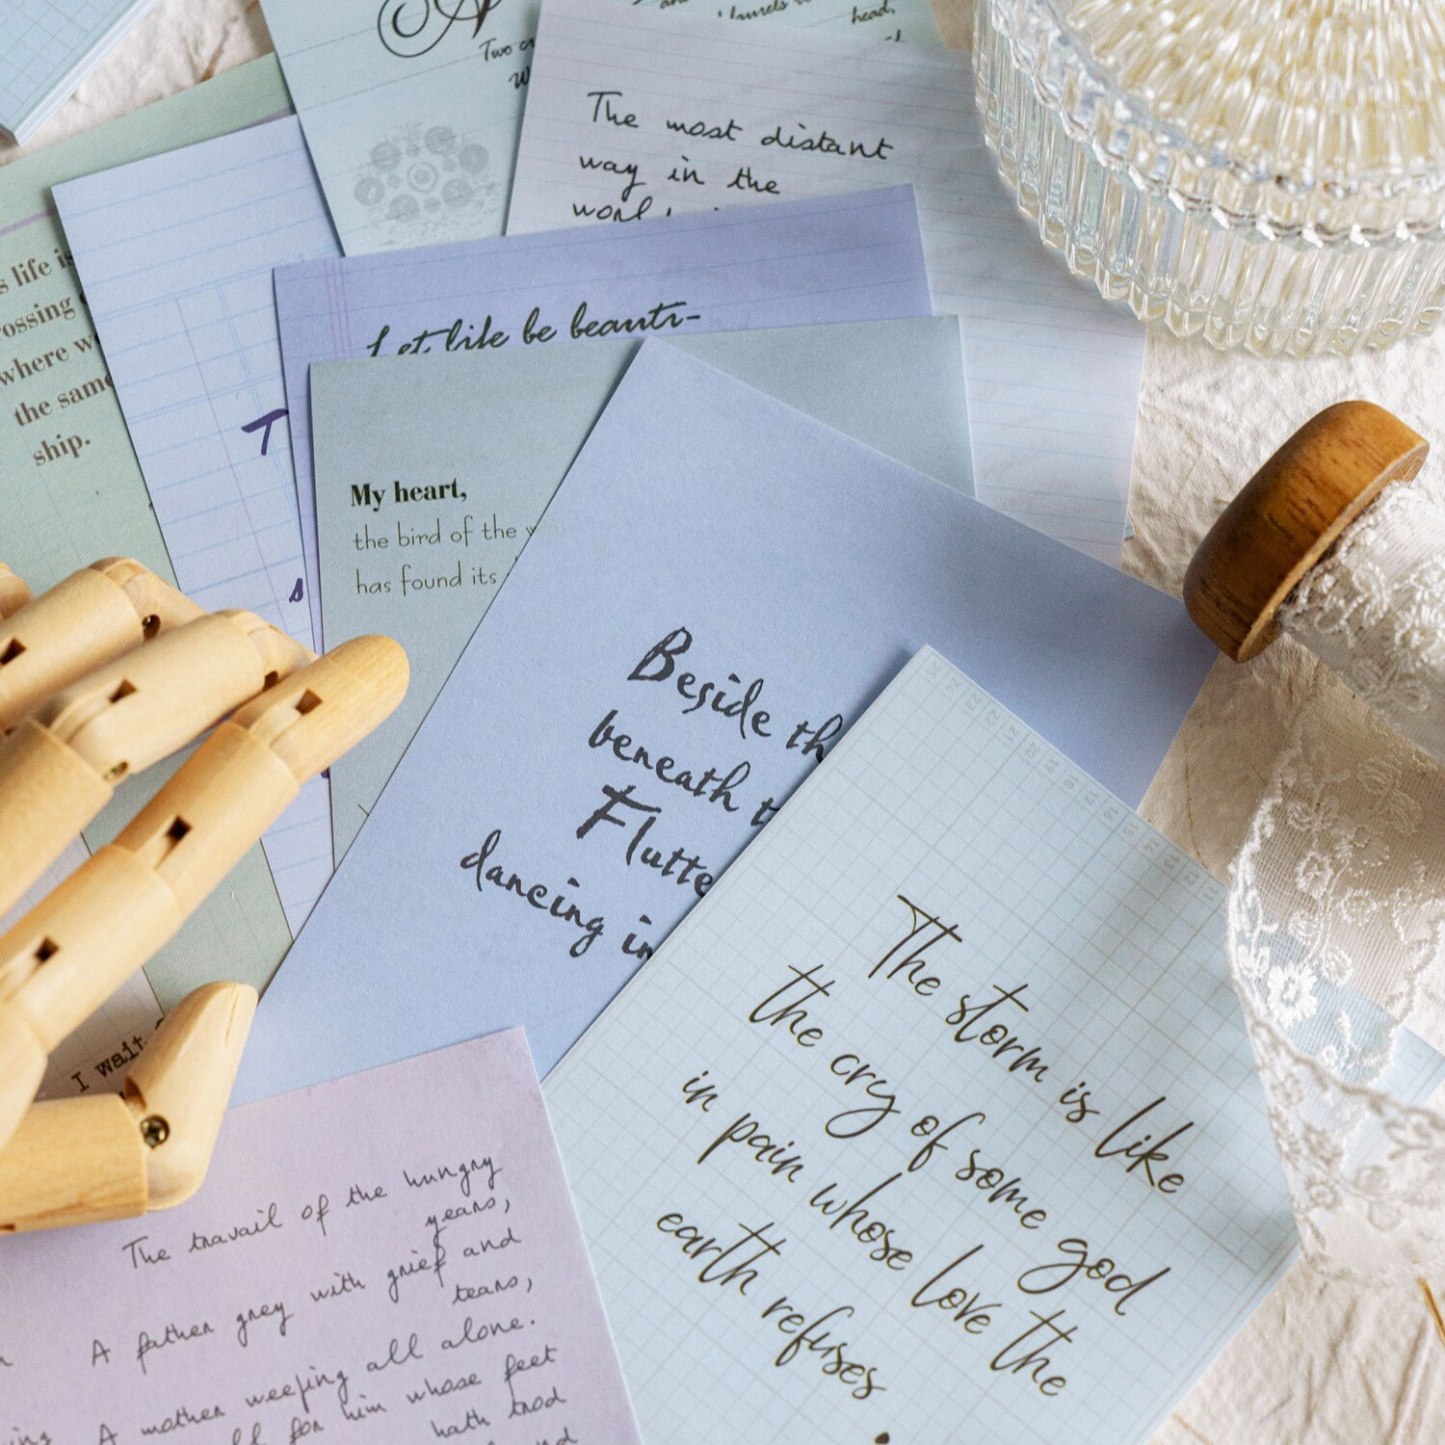 Two
The most distant
way in the
Let life be beauti-
s life is
rossing
where we
the same
ship.
My heart,
the bird of the
has found its
Beside th
beneath t
Flutte
dancing in
The storm is like
the cry of some god
in pain whose love the
earth refuses
.
I wait
The travail of the hungry
years,
A father grey with grief and
tears,
A mother weeping all alone.
for him whose feet
hath trod
head,